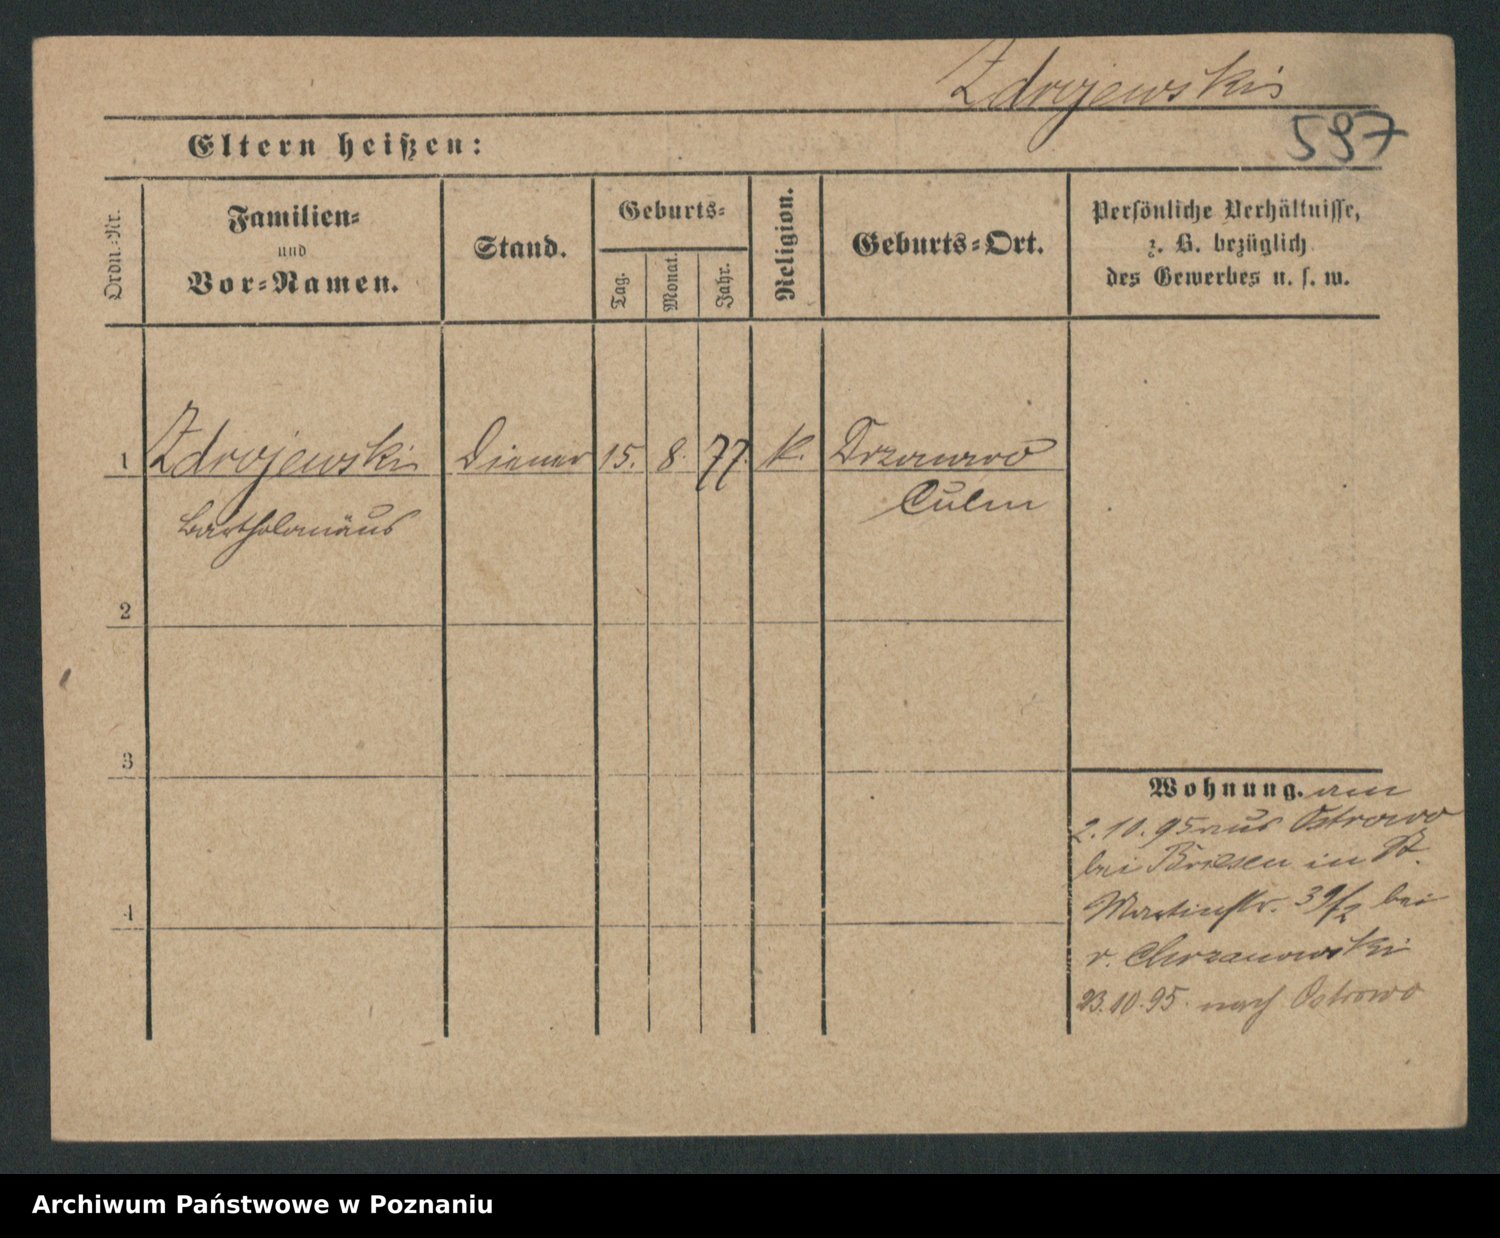 Zdrojewski
597
Eltern heißen:
Ordn.-Nr.
Familien-
und
Vor-Namen.
Stand.
Geburts-
Tag.
Monat.
Jahr.
Religion.
Geburts-Ort.
Persönliche Verhältnisse,
z. B. bezüglich
des Gewerbes u. s. w.
1 Zdrojewski Diener 15. 8. 77. k.
Culm
Bartholomäus
2
3
4
Wohnung. am
2.10.95 aus Ostrowo
bei Briesen in St.
Martinstr. bei
v. Chrzanowski
23.10.95. nach Ostrowo
Archiwum Państwowe w Poznaniu